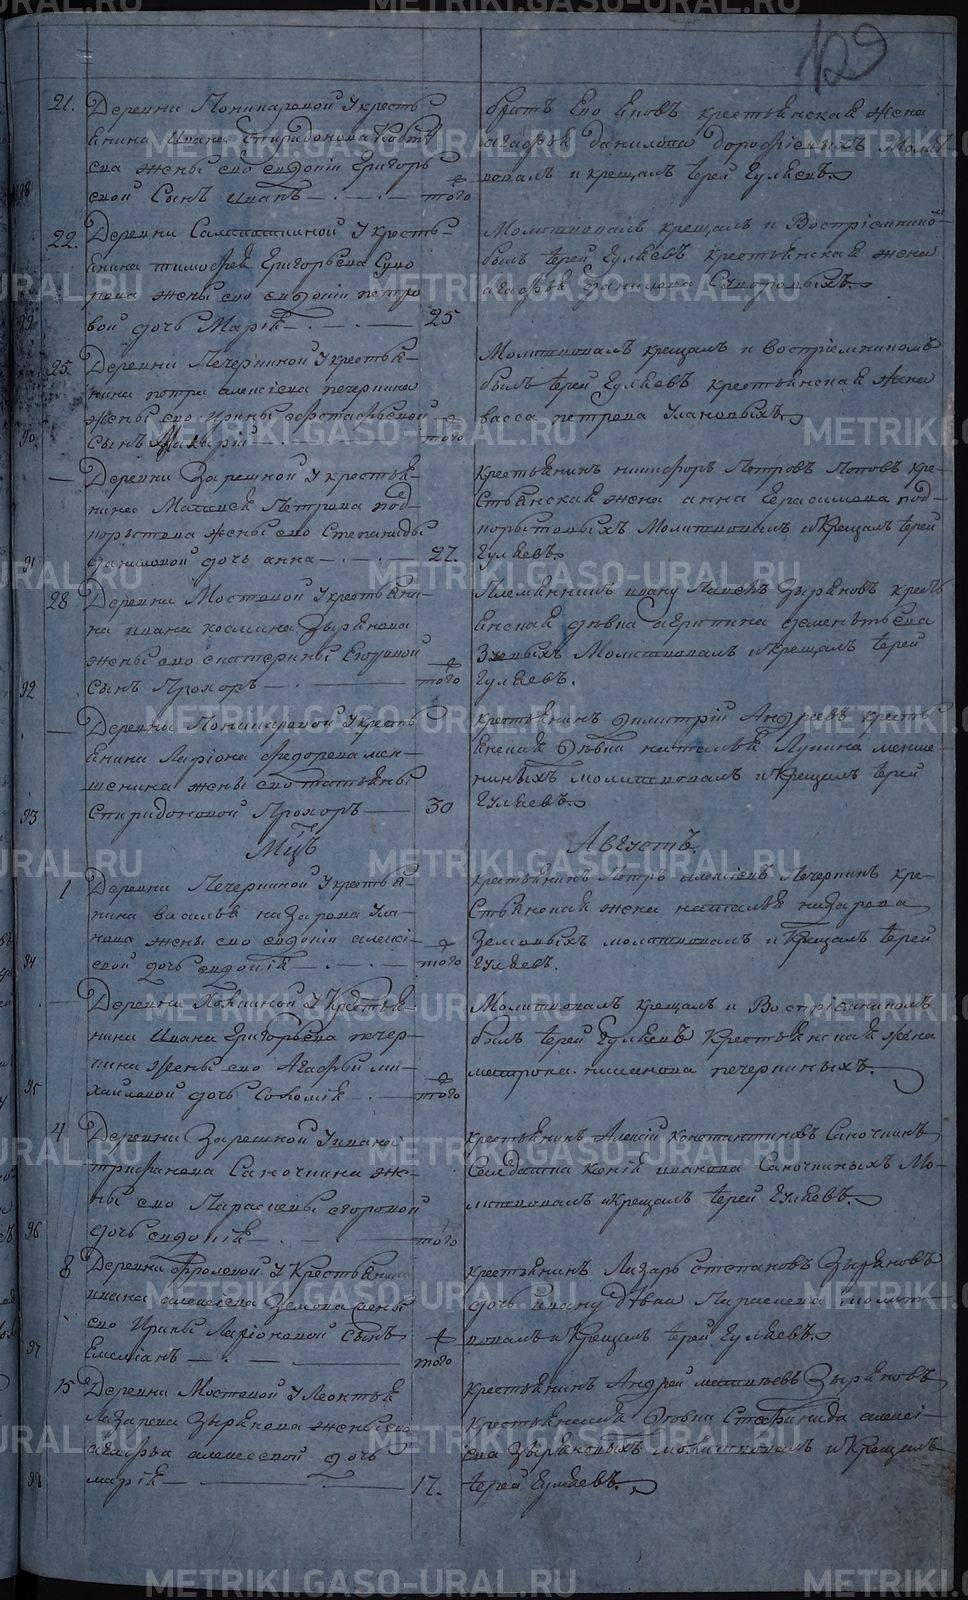 129
21. Деревни Пономаревой У кресть
янина Ивана Спиридонова
жены его евдокіи Григорь
88 евой Сынъ иванъ — того
братъ Его крестьянская жена
агафья данилова дорофѣевыхъ Молит
вовалъ и крещалъ Іерей Гуляевъ.
22. Деревни У кресть
янина тимофея Григорьева
жены его евдокіи петро
89 вой дочь Марія — 25
Молитвовалъ крещалъ и Воспріемникомъ
былъ Іерей Гуляевъ крестьянская жена
агафья Данилова
25. Деревни Печеркиной У крестья
нина петра алексіева печеркина
жены его Ирины евстафьевой
90 Сынъ — того
Молитвовалъ крещалъ и воспріемникомъ
былъ Іерей Гуляевъ крестьянская жена
васса петрова Улановыхъ.
— Деревни Зарешной У крестья
нина Матвея Петрова под
корытова жены его Степаниды
91 даниловой дочь анна — 27.
Крестьянинъ никифоръ Петровъ Поповъ кре
стьянская жена анна Герасимова под
корытовыхъ Молитвовалъ и Крещалъ Іерей
Гуляевъ.
28 Деревни Мостовой У крестьяни
на ивана козмина Зырянова
жены его екатерины Егоровой
92 сынъ Прохоръ — того
Племянникъ ивану Зыряновъ кресть
янская дѣвка Дементьева
Зуевыхъ Молитвовалъ и Крещалъ Іерей
Гуляевъ.
— Деревни Пономаревой У кресть
янина Ларіона федорова мен
шенина жены его татьяны
93 Спиридоновой Прохоръ — 30
крестьянинъ димитрій Андреевъ кресть
янская Дѣвка наталья Лукина менше
ниныхъ молитвовалъ и Крещалъ Іерей
Гуляевъ.
Мцъ Августъ.
1 Деревни Печеркиной У крестья
нина василья назарова Ула
нова жены его евдокіи алексі
94 евой дочь евдокія — того
крестьянинъ Петръ алексіевъ Печеркинъ кре
стьянская жена наталья назарова
Земовыхъ молитвовалъ и Крещалъ Іерей
Гуляевъ.
— Деревни У Крестья
нина Ивана Григорьева печер
кина Жены его Агафьи ми
95 хайловой дочь Соломія — того
Молитвовалъ крещалъ и Воспріемникомъ
былъ Іерей Гуляевъ Крестьянская жена
матрона иванова печеркиныхъ.
4 Деревни Зарешной У ивана
трифанова Саночкина же
ны его Параскевы егоровой
96 дочь евдокія — того
крестьянинъ Алексій константиновъ Саночкинъ
Солдатка ксенія иванова Саночкиныхъ Мо
литвовалъ и Крещалъ Іерей Гуляевъ.
8 Деревни Фроловой У Крестьянина
ивана алексіева Земова жены
его Ирины Ларіоновой сынъ
97 Емеліанъ — того
крестьянинъ Лазарь степановъ Зыряновъ
дочь ивану дѣвка Параскева молит
вовалъ и Крещалъ Іерей Гуляевъ.
15 Деревни Мостовой У Леонтья
Лазарева Зырянова жены его
агафьи алексеевой дочь
98 марія — 17.
крестьянинъ Андрей матвѣевъ Зыряновъ
крестьянская Дѣвка Стефанида алексі
ева Зыряновыхъ молитвовалъ и Крещалъ
Іерей Гуляевъ.
METRIKI.GASO-URAL.RU